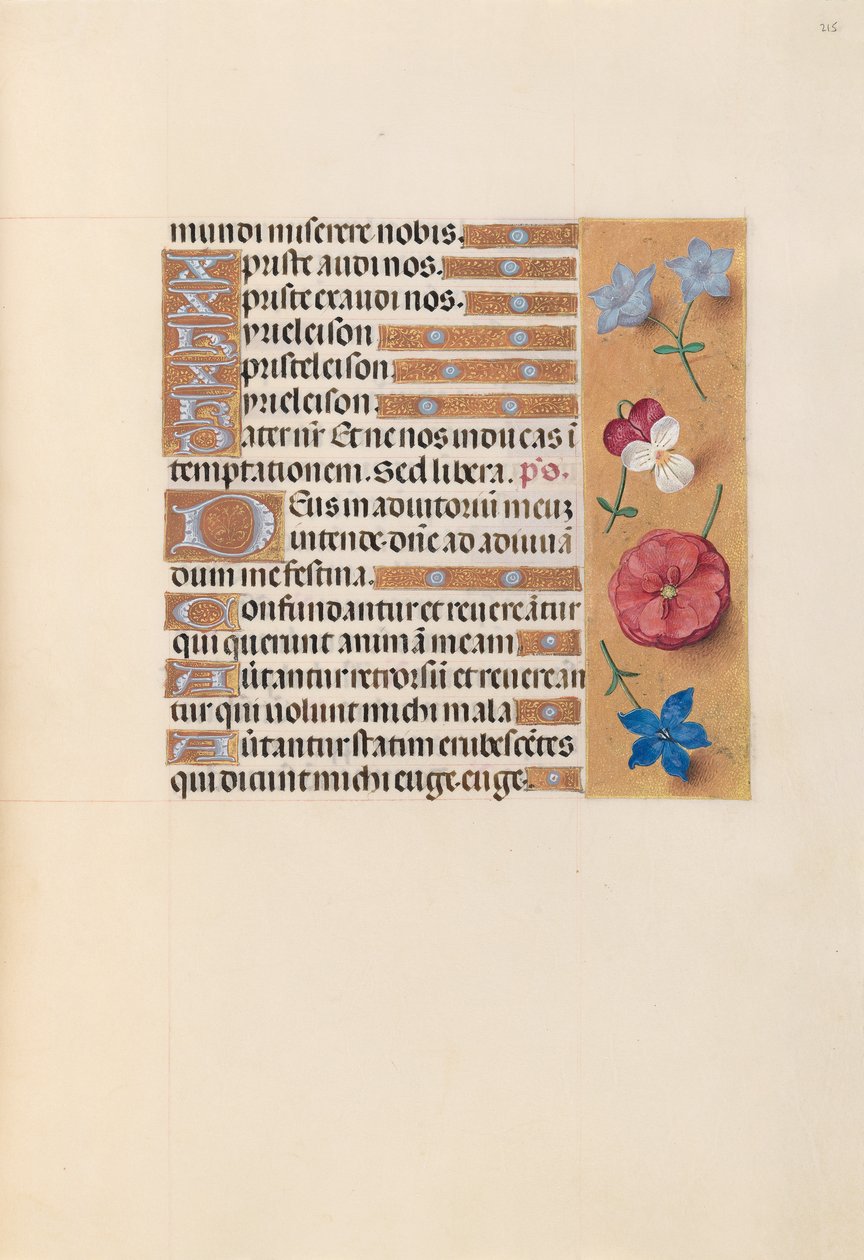 215
mundi miserere nobis.
Xpriste audi nos.
Xpriste exaudi nos.
Kyrieleison
Xpristeleison.
Kyrieleison.
Pater nr̄ Et ne nos inducas ī
temptationem. Sed libera. ps̄.
Deus in adiutoriū meuz
intende. dn̄e ad adiuuā
dum me festina.
Confundantur et reuereātur
qui querunt animā meam
Auērtantur retrorsū et reuerean
tur qui uolunt michi mala
Auērtantur statim erubescētes
qui dicunt michi euge. euge.